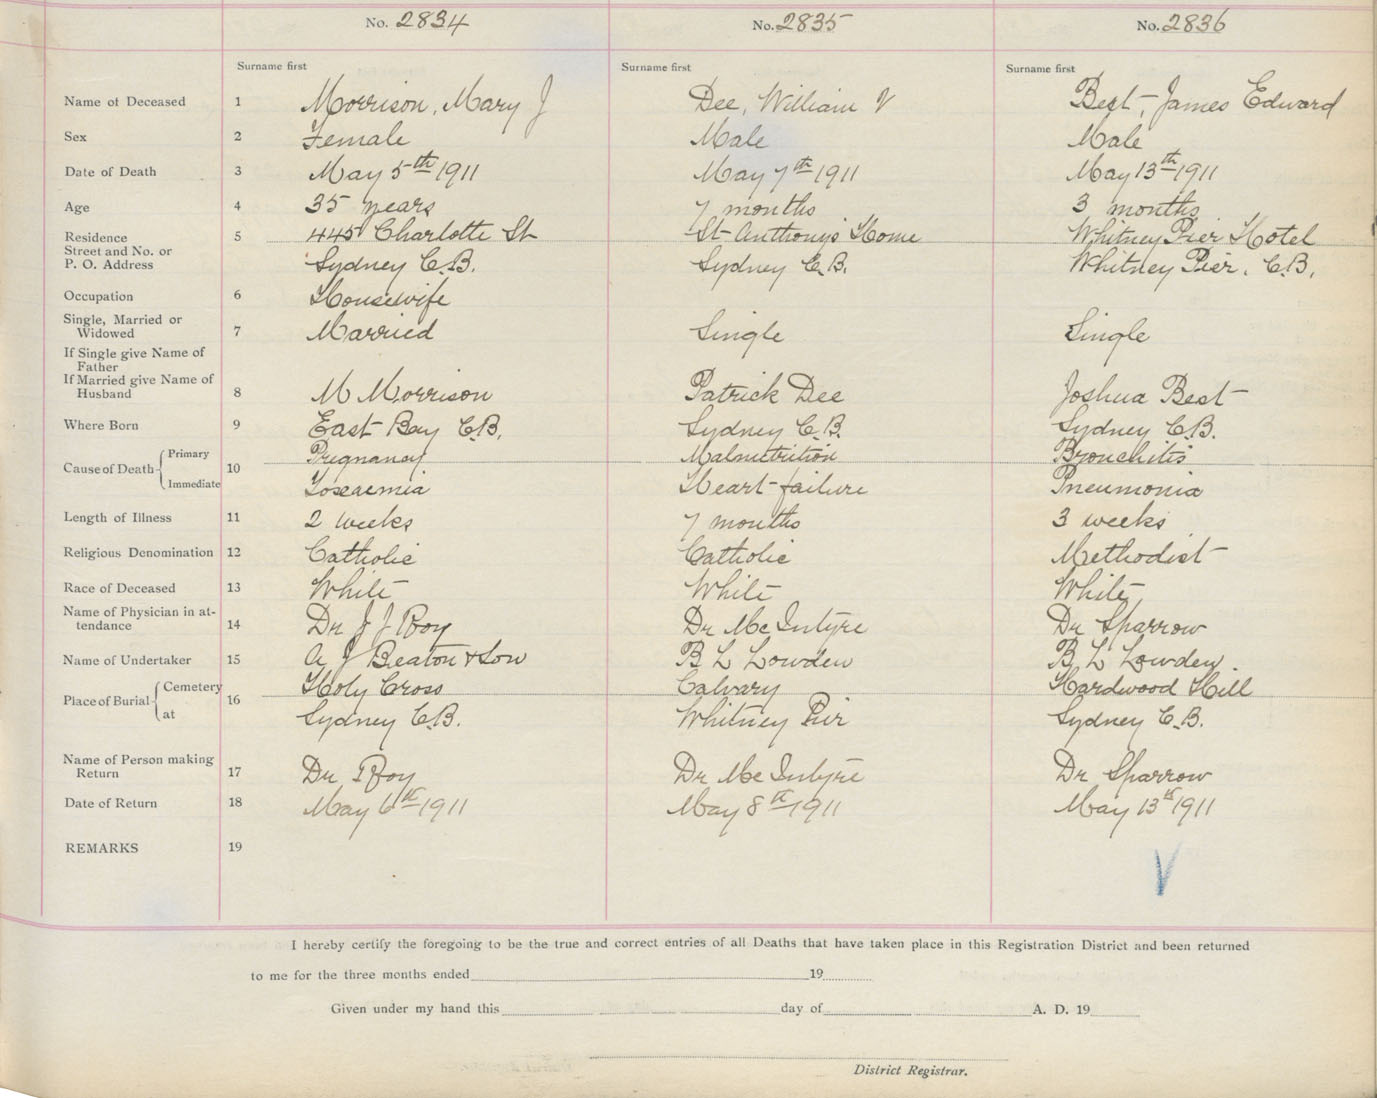 No. 2834 No. 2835 No. 2836
Surname first Surname first Surname first
Name of Deceased 1 Morrison, Mary J Dee, William V Best, James Edward
Sex 2 Female Male Male
Date of Death 3 May 5th 1911 May 7th 1911 May 13th 1911
Age 4 35 years 7 months 3 months
Residence 5 445 Charlotte St St Anthony's Home Whitney Pier Hotel
Street and No. or
P. O. Address Sydney C.B. Sydney C.B. Whitney Pier, C.B.
Occupation 6 Housewife
Single, Married or
Widowed 7 Married Single Single
If Single give Name of
Father
If Married give Name of
Husband 8 M Morrison Patrick Dee Joshua Best
Where Born 9 East Bay C.B. Sydney C.B. Sydney C.B.
Primary Pregnancy Malnutrition Bronchitis
Cause of Death 10
Immediate Toxaemia Heart failure Pneumonia
Length of Illness 11 2 weeks 7 months 3 weeks
Religious Denomination 12 Catholic Catholic Methodist
Race of Deceased 13 White White White
Name of Physician in at-
tendance 14 Dr J J Roy Dr McIntyre Dr Sparrow
Name of Undertaker 15 A J Beaton & Son B L Lowden B L Lowden.
Cemetery Holy Cross Calvary Hardwood Hill
Place of Burial 16
at Sydney C.B. Whitney Pier Sydney C.B.
Name of Person making
Return 17 Dr Roy Dr McIntyre Dr Sparrow
Date of Return 18 May 6th 1911 May 8th 1911 May 13th 1911
REMARKS 19
I hereby certify the foregoing to be the true and correct entries of all Deaths that have taken place in this Registration District and been returned
to me for the three months ended 19
Given under my hand this day of A. D. 19
District Registrar.